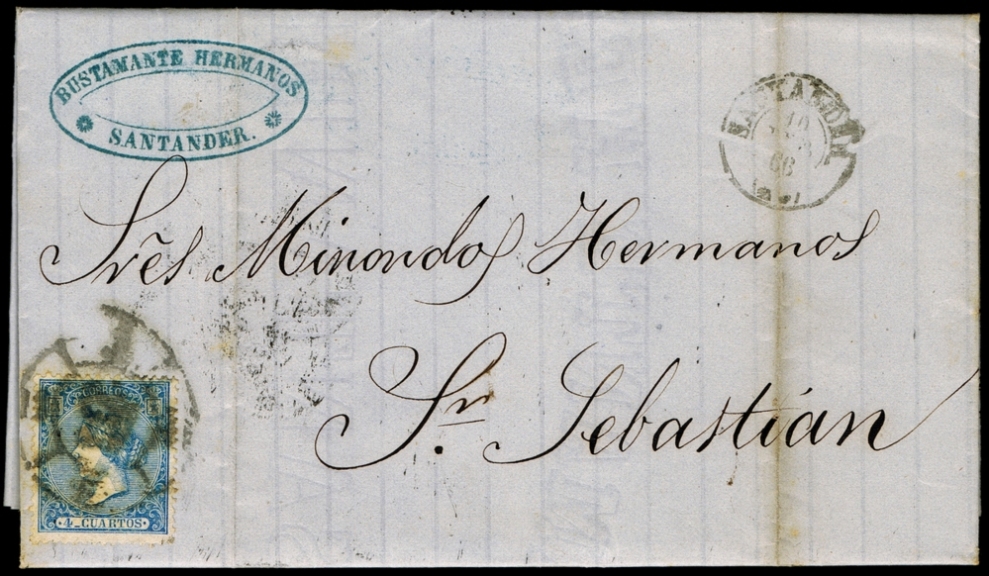 BUSTAMANTE HERMANOS
SANTANDER.
SANTANDER
66
Srẽs Minondos Hermanos
Sn. Sebastián
CORREOS
4 CUARTOS